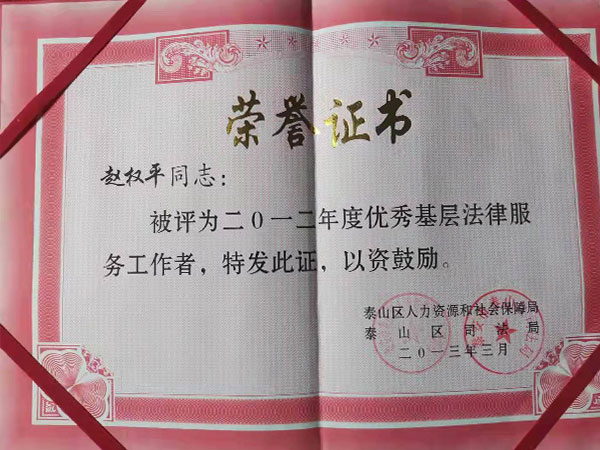 荣誉证书
赵权平同志：
被评为二0一二年度优秀基层法律服
务工作者，特发此证，以资鼓励。
泰山区人力资源和社会保障局
泰山区司法局
二0一三年三月